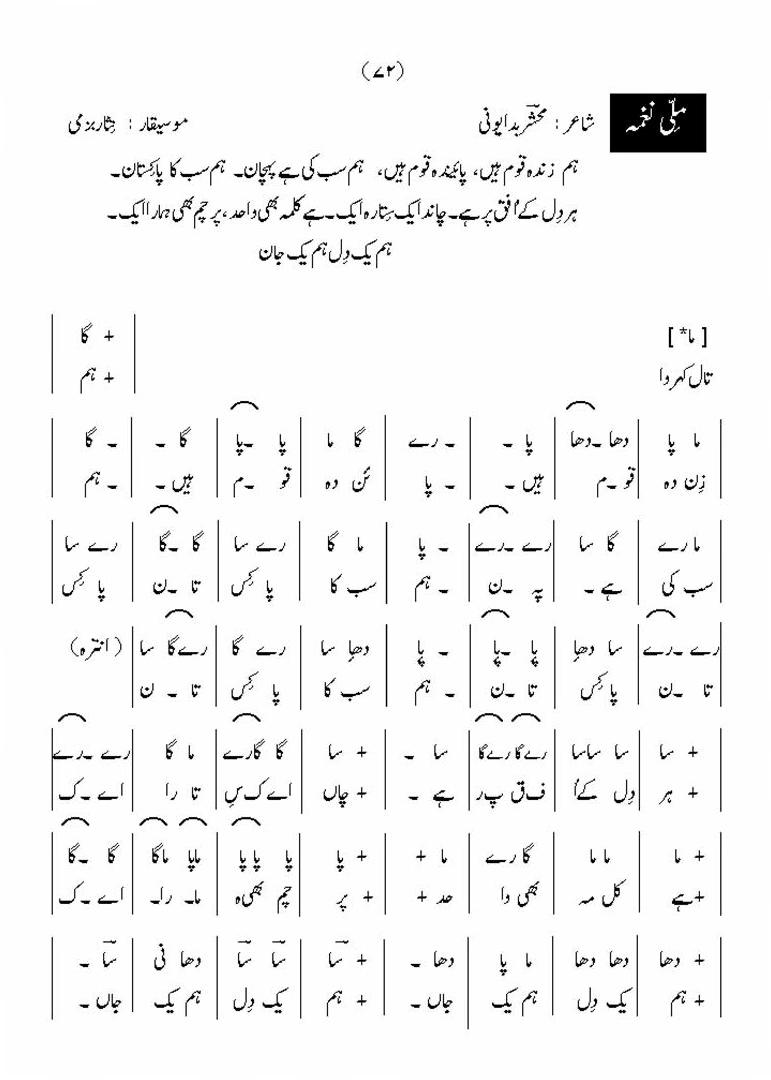 (۷۲)
ملّی نغمہ شاعر : محشر بدایونی موسیقار : نثار بزمی
ہم زندہ قوم ہیں، پائیندہ قوم ہیں، ہم سب کی ہے پہچان۔ ہم سب کا پاکستان۔
ہر دِل کے اُفق پر ہے۔ چاند ایک سِتارہ ایک۔ ہے کلمہ بھی واحد، پرچم بھی ہمارا ایک۔
ہم یک دِل ہم یک جان
[ ما* ] | + گا |
تال کہروا | + ہم |
| ما پا | دھا ۔دھا | پا ۔ | ۔ رے | گا ما | پا ۔پا | گا ۔ | ۔ گا |
| زِن دہ | قو ۔م | ہیں ۔ | ۔ پا | ئن دہ | قو ۔م | ہیں ۔ | ۔ ہم |
| ما رے | گا سا | رے ۔رے | ۔ پا | ما گا | رے سا | گا ۔گا | رے سا |
| سب کی | ہے ۔ | پہ ۔ن | ۔ ہم | سب کا | پا کِس | تا ۔ن | پا کِس |
| رے ۔رے | سا دھا | پا ۔پا | ۔ پا | دھا سا | رے گا | رےگا سا | (انترہ)
| تا ۔ن | پا کِس | تا ۔ن | ۔ ہم | سب کا | پا کِس | تا ۔ ن |
| + سا | سا ساسا | رےگا رےگا | سا ۔ | + سا | گا گارے | ما گا | رے ۔رے |
| + ہر | دِل کےاُ | ف ق پ ر | ہے ۔ | + چاں | اے ک سِ | تا را | اے ۔ک |
| + ما | ما ما | گا رے | ما + | + پا | پا پاپا | ماپا ماگا | گا ۔گا |
| +ہے | کل مہ | بھی وا | حد + | + پر | چم بھی ہ | ما۔ را۔ | اے ۔ک |
| + دھا | دھا دھا | ما پا | دھا ۔ | + سا | سا سا | دھا نی | سا ۔ |
| + ہم | یک دِل | ہم یک | جاں ۔ | + ہم | یک دِل | ہم یک | جاں ۔ |